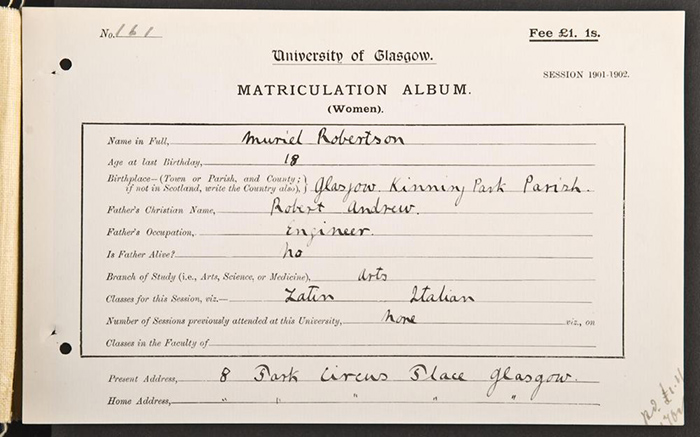 No. 161 Fee £1. 1s.
University of Glasgow.
SESSION 1901-1902.
MATRICULATION ALBUM.
(Women).
Name in Full, Muriel Robertson
Age at last Birthday, 18
Birthplace—(Town or Parish, and County;
if not in Scotland, write the Country also), } Glasgow. Kinning Park Parish.
Father's Christian Name, Robert Andrew.
Father's Occupation, Engineer.
Is Father Alive? No
Branch of Study (i.e., Arts, Science, or Medicine), Arts
Classes for this Session, viz.— Latin Italian
Number of Sessions previously attended at this University, None viz., on
Classes in the Faculty of
Present Address, 8 Park Circus Place Glasgow.
Home Address, " " " " "